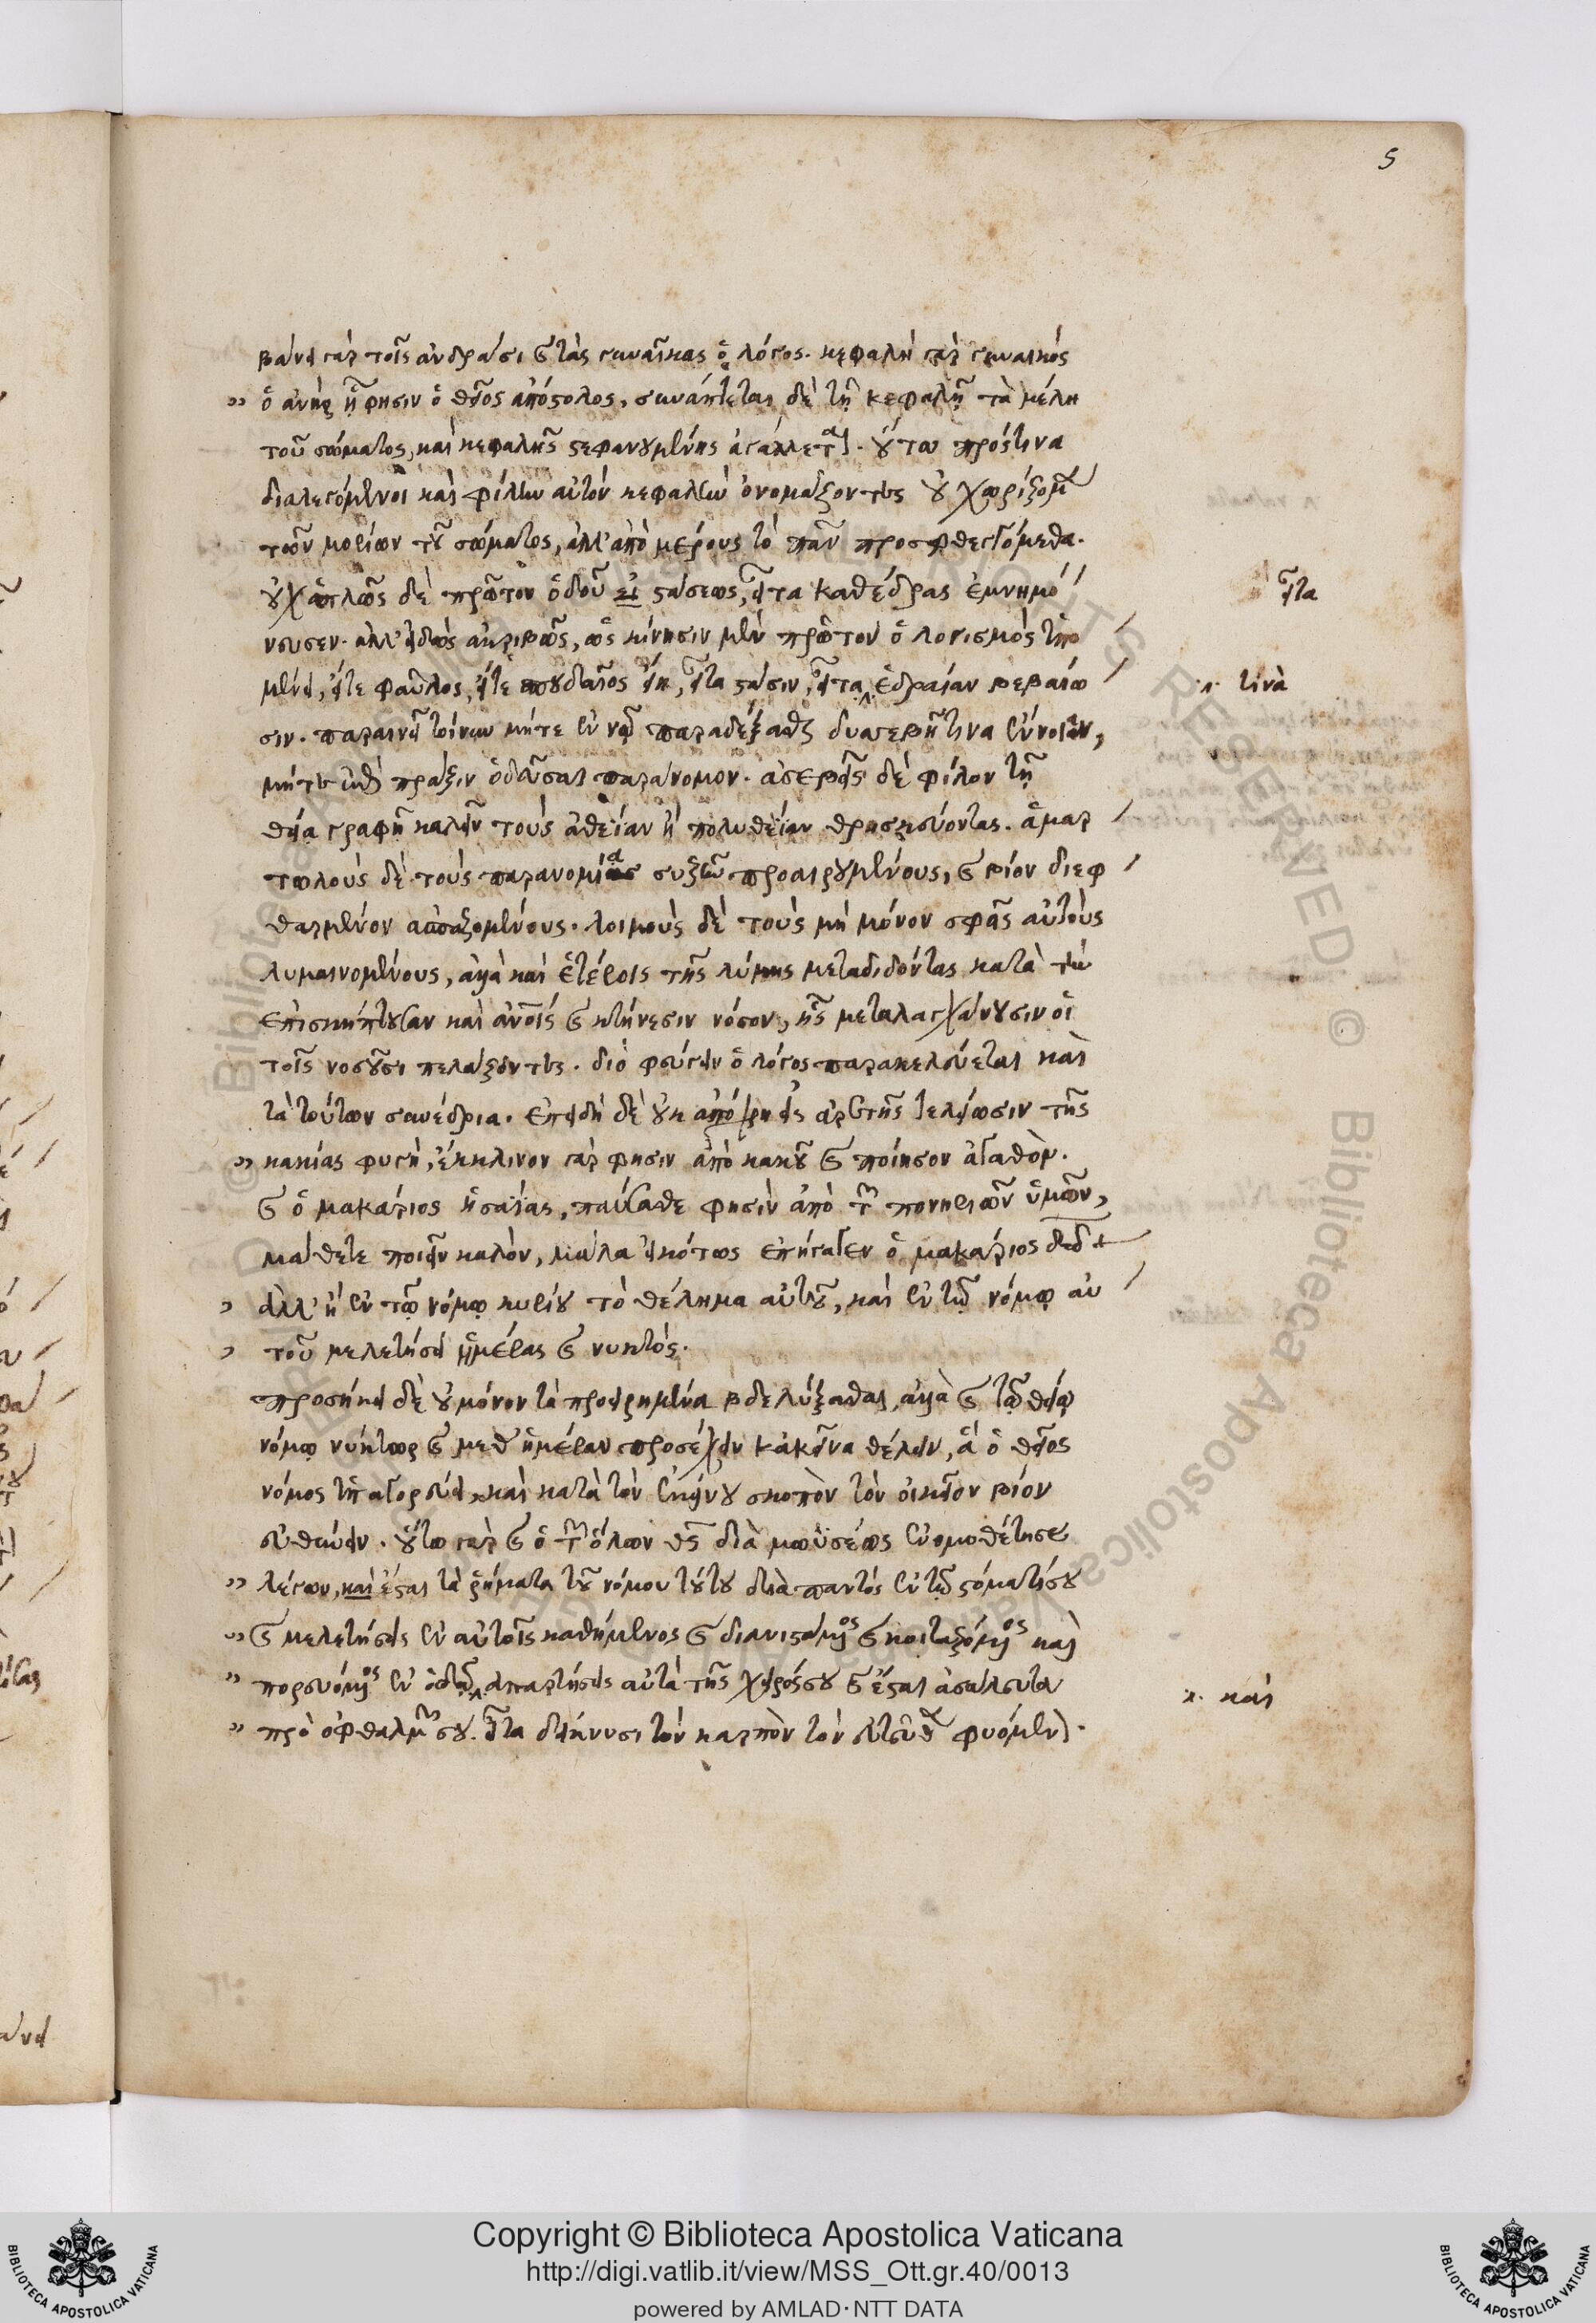 5
βάνει γὰρ τοῖς ἀνδράσι καὶ τὰς γυναῖκας ὁ λόγος. κεφαλὴ γὰρ γυναικός
" ὁ ἀνήρ ᾗ φησιν ὁ θεῖος ἀπόστολος, συνάπτεται δὲ τῇ κεφαλῇ τὰ μέλη
τοῦ σώματος, καὶ κεφαλῆς στεφανουμένης ἀγάλλεται. οὕτω πρός τινα
διαλεγόμενοι καὶ φίλην αὐτὸν κεφαλὴν ὀνομάζοντες οὐ χωρίζομεν
τῶν μορίων τοῦ σώματος, ἀλλ' ἀπὸ μέρους τὸ πᾶν προσφθεγγόμεθα.
οὐχ ἁπλῶς δὲ πρῶτον ὁδοῦ εἶ στάσεως, εἶτα καθέδρας ἐμνημό
εἶτα
νευσεν. ἀλλ' εἰδὼς ἀκριβῶς, ὡς κίνησιν μὲν πρῶτον ὁ λογισμὸς ὑπο
μένει, εἴτε φαῦλος, εἴτε σπουδαῖος εἴη, εἶτα στάσιν, εἶτα ἑδραίαν βεβαίω
τινὰ
σιν. παραινεῖ τοίνυν μήτε ἐν νῷ παραδέξασθαι δυσσεβῆ τινα ἔννοιαν,
μήτε ἐπὶ πρᾶξιν ὁδεῦσαι παράνομον. ἀσεβεῖς δὲ φίλον τῇ
θείᾳ γραφῇ καλεῖν τοὺς ἀθεΐαν ἢ πολυθεΐαν θρησκεύοντας. ἁμαρ
τωλοὺς δὲ τοὺς παρανομίᾳ συζῆν προαιρουμένους, καὶ βίον διεφ
θαρμένον ἀσπαζομένους. λοιμοὺς δὲ τοὺς μὴ μόνον σφᾶς αὐτοὺς
λυμαινομένους, ἀλλὰ καὶ ἑτέροις τῆς λύμης μεταδιδόντας κατὰ τὴν
ἐπισκήπτουσαν καὶ ἀνοις καὶ κτήνεσιν νόσον, ἧς μεταλαγχάνουσιν οἱ
τοῖς νοσοῦσι πελάζοντες. διὸ φεύγειν ὁ λόγος παρακελεύεται καὶ
τὰ τούτων συνέδρια. ἐπειδὴ δὲ οὐκ ἀπόχρη εἰς ἀρετῆς τελείωσιν τῆς
" κακίας φυγή, ἔκκλινον γάρ φησιν ἀπὸ κακοῦ καὶ ποίησον ἀγαθὸν.
καὶ ὁ μακάριος ἡσαΐας, παύσασθε φησὶν ἀπὸ τῶν πονηριῶν ὑμῶν,
μάθετε ποιεῖν καλὸν, μάλα εἰκότως ἐπήγαγεν ὁ μακάριος δαδ
, ἀλλ' ἢ ἐν τῷ νόμῳ κυρίου τὸ θέλημα αὐτοῦ, καὶ ἐν τῷ νόμῳ αὐ
, τοῦ μελετήσει ἡμέρας καὶ νυκτός.
προσήκει δὲ οὐ μόνον τὰ προειρημένα βδελύξασθαι, ἀλλὰ καὶ τῷ θείῳ
νόμῳ νύκτωρ καὶ μεθ' ἡμέραν προσέχειν κἀκεῖνα θέλειν, ἃ ὁ θεῖος
νόμος ὑπαγορεύει, καὶ κατὰ τὸν ἐκείνου σκοπὸν τὸν οἰκεῖον βίον
εὐθύνειν. οὕτω γὰρ καὶ ὁ τῶν ὅλων θς διὰ μωϋσέως ἐνομοθέτησε
" λέγων, καὶ ἔσται τὰ ῥήματα τοῦ νόμου τούτου διὰ παντὸς ἐν τῷ στόματί σου
" καὶ μελετήσεις ἐν αὐτοῖς καθήμενος καὶ διανιστάμενος καὶ κοιταζόμενος καὶ
" πορευόμενος ἐν ὁδῷ ἀπαρτήσεις αὐτὰ τῆς χειρός σου καὶ ἔσται ἀσάλευτα
καὶ
" πρὸ ὀφθαλμῶν σου. εἶτα δείκνυσι τὸν καρπὸν τὸν ἐντεῦθεν φυόμενον.
Copyright © Biblioteca Apostolica Vaticana
http://digi.vatlib.it/view/MSS_Ott.gr.40/0013
powered by AMLAD·NTT DATA